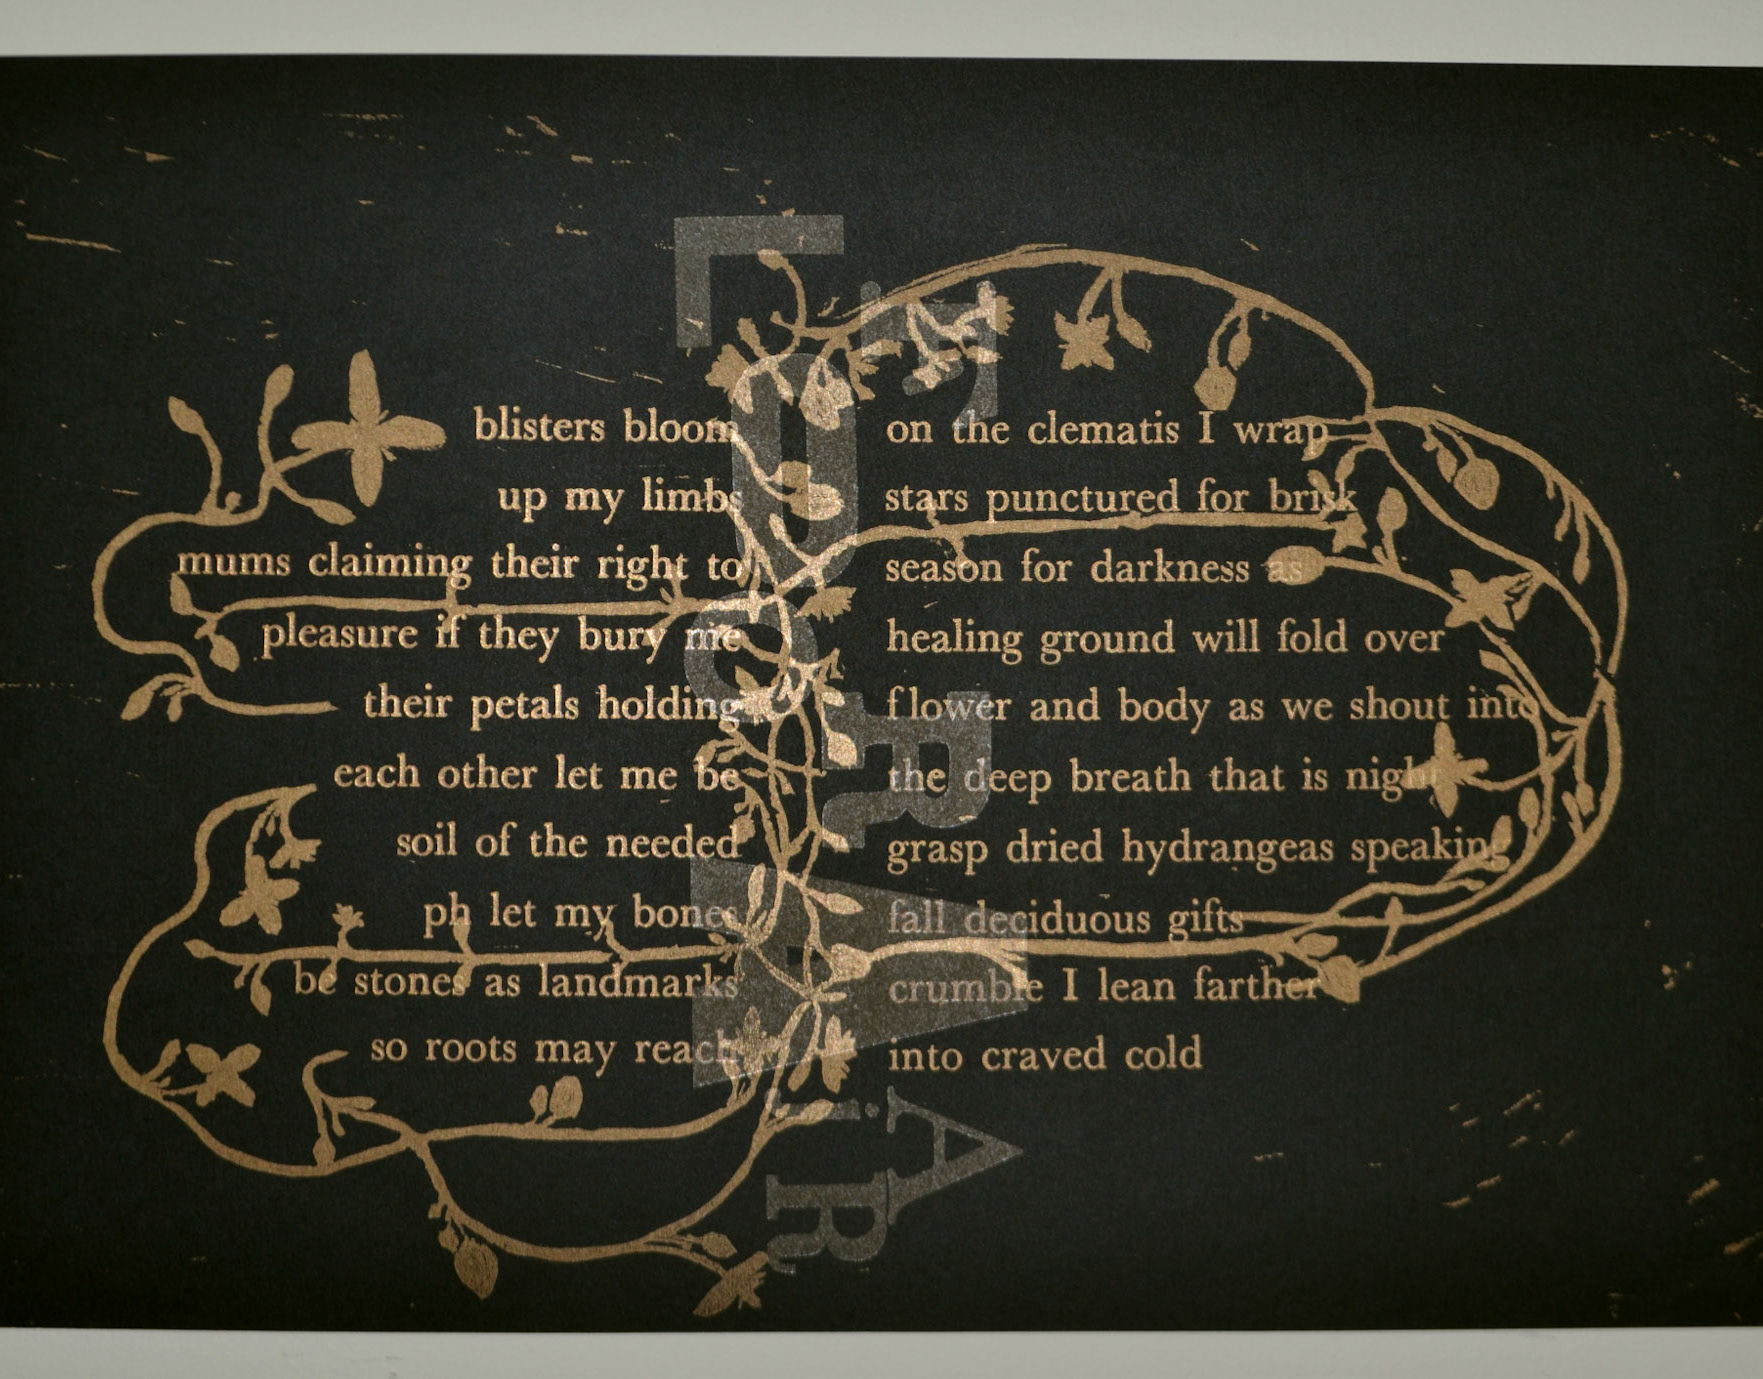 blisters bloom on the clematis I wrap
up my limbs stars punctured for brisk
mums claiming their right to season for darkness as
pleasure if they bury me healing ground will fold over
their petals holding flower and body as we shout into
each other let me be the deep breath that is night
soil of the needed grasp dried hydrangeas speaking
ph let my bones fall deciduous gifts
be stones as landmarks crumble I lean farther
so roots may reach into craved cold